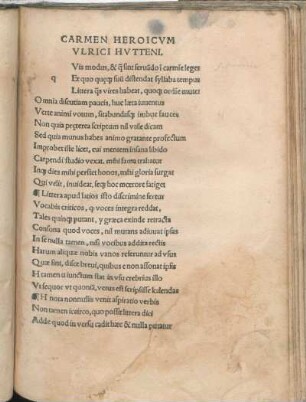 CARMEN HEROICVM
VLRICI HVTTENI.
Vis modũ, & q̃ sint seruãdo ĩ carmĩe leges
q Et quo quæq; suũ distendat syllaba tempus
Littera q̃s vires habeat, quoq; ordine mutet
Omnia discutiam paucis, huc læta iuuentus
Verte animi votum, sitibundasq; imbue fauces
Non quia præterea scriptum nil vsse dicam
Sed quia munus habes animo gratante profectum
Improbet ille licet, cui mentem insana libido
Carpendi studio vexat, mihi fama trahatur
Inq; dies mihi perstet honos, mihi gloria surgat
Qui velit, inuideat, seq; hoc mœrore fatiget
Littera apud latios isto discrimine fertur
Vocabis criticos, q̃ voces integra reddat,
Tales quinq; putant, y græca exinde retracta
Consona quod voces, nil mutrans adiuuat ipsas
In se nulla tamen, nisi vocibus addita rectis
Harum aliquæ nobis varios referuntur ad vsus
Quæ sint, disce breui, quibus e non assonat ipsis
H tamen u iunctum stat in vsu crebrius isto
Vt sequor vt quoniã, verus est scripsisse
H nota nonnullis venit aspiratio verbis
Non tamen iccirco, quo possit littera dici
Adde quod in versu cadit hæc & nulla putatur